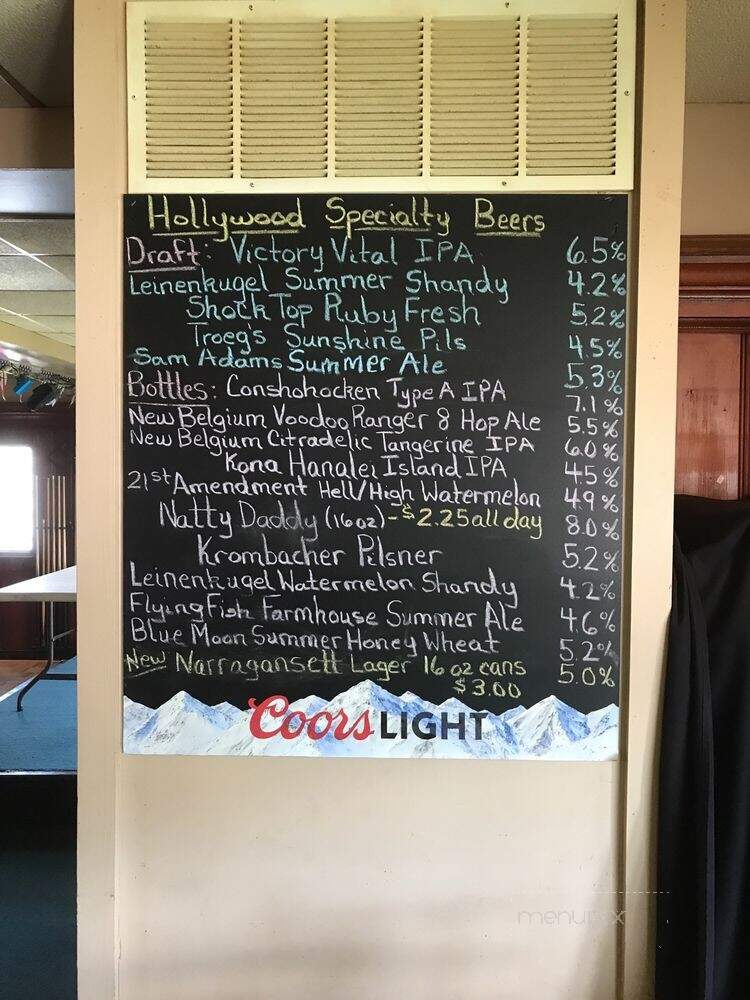 Hollywood Specialty Beers
Draft: Victory Vital IPA 6.5%
Leinenkugel Summer Shandy 4.2%
Shock Top Ruby Fresh 5.2%
Troeg's Sunshine Pils 4.5%
Sam Adams Summer Ale 5.3%
Bottles: Conshohocken Type A IPA 7.1%
New Belgium Voodoo Ranger 8 Hop Ale 5.5%
New Belgium Citradelic Tangerine IPA 6.0%
Kona Hanalei Island IPA 4.5%
21st Amendment Hell/High Watermelon 4.9%
Natty Daddy (16oz) - $2.25 all day 8.0%
Krombacher Pilsner 5.2%
Leinenkugel Watermelon Shandy 4.2%
Flying Fish Farmhouse Summer Ale 4.6%
Blue Moon Summer Honey Wheat 5.2%
New Narragansett Lager 16 oz cans 5.0%
$3.00
Coors LIGHT
menupix